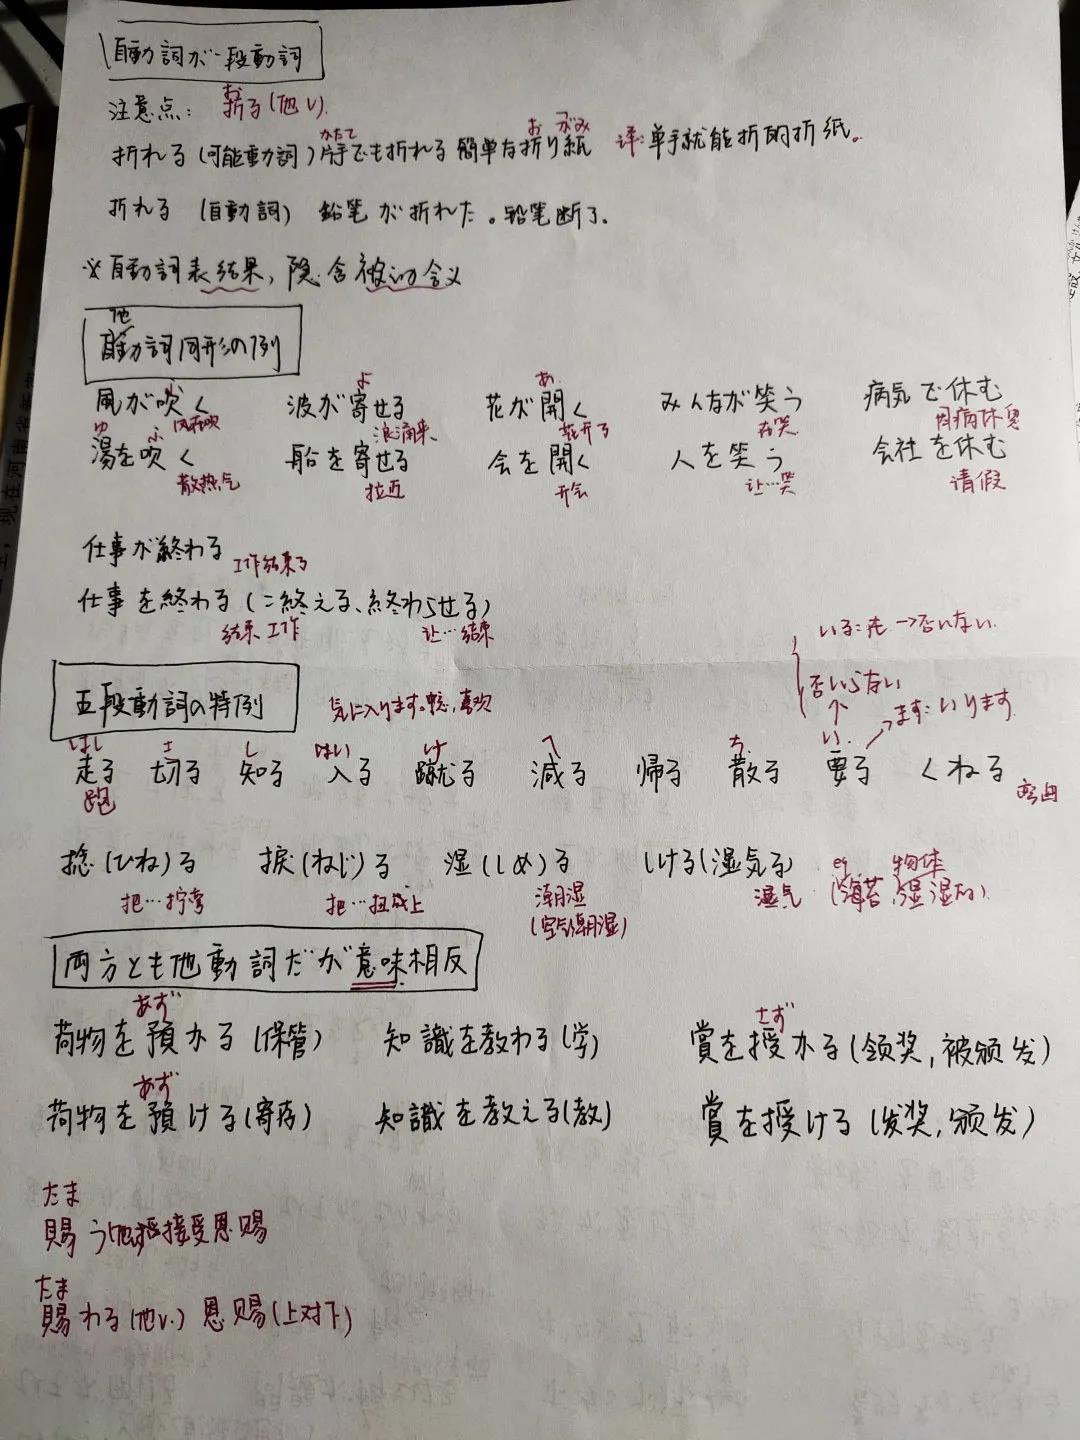 自動詞が一段動詞
お
注意点： 折る(他v).
かたて お がみ
折れる (可能動詞) 片手でも折れる 簡単な折り紙 译:单手就能折的折纸。
折れる (自動詞) 鉛笔が折れた。铅笔断了.
※自動詞表结果, 隐含被的含义
他
自動詞同形の例
ふ よ あ
風が吹く 波が寄せる 花が開く みんなが笑う 病気で休む
风在吹 浪涌来 花开了 在笑 因病休息
ゆ ふ
湯を吹く 船を寄せる 会を開く 人を笑う 会社を休む
散热气 拉近 开会 让…笑 请假
仕事が終わる 工作结束了
仕事を終わる (=終える、終わらせる)
结束工作 让…结束
いる:走 →否いない.
否いらない
五段動詞の特例 気に入ります. 喜欢
ます:いります
はし き し はい け へ ち い
走る 切る 知る 入る 蹴る 減る 帰る 散る 要る くねる
跑 弯曲
捻(ひね)る 捩(ねじ)る 湿(しめ)る しける(湿気る) eg 物体
把…拧弯 把…扭成上 潮湿 湿气 (海苔,湿湿的)
(空气潮湿)
両方とも他動詞だが意味相反
あず さず
荷物を預かる (保管) 知識を教わる (学) 賞を授かる (领奖,被颁发)
あず
荷物を預ける (寄存) 知識を教える (教) 賞を授ける (发奖,颁发)
たま
賜う 接受恩赐
たま
賜わる (他v.) 恩赐 (上对下)